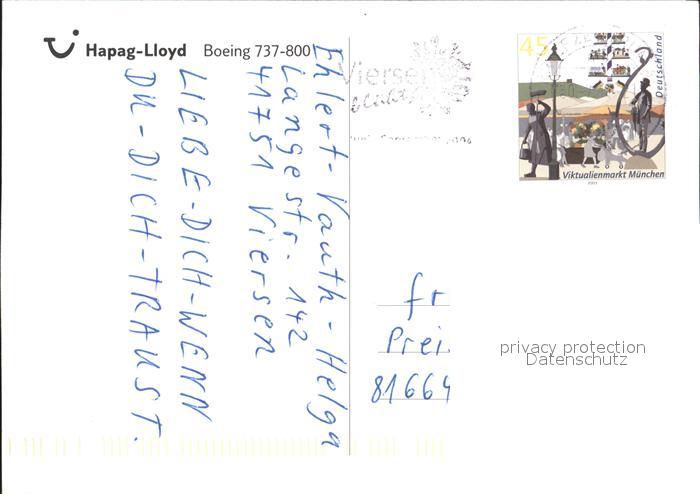 Hapag-Lloyd Boeing 737-800
Ehlert-Vauth-Helga
Langestr. 142
41751 Viersen
LIEBE-DICH-WENN
DU-DICH-TRAUST.
Viersen
blüht
45
Deutschland
Viktualienmarkt München
2003
fr
Prei
81664
privacy protection
Datenschutz